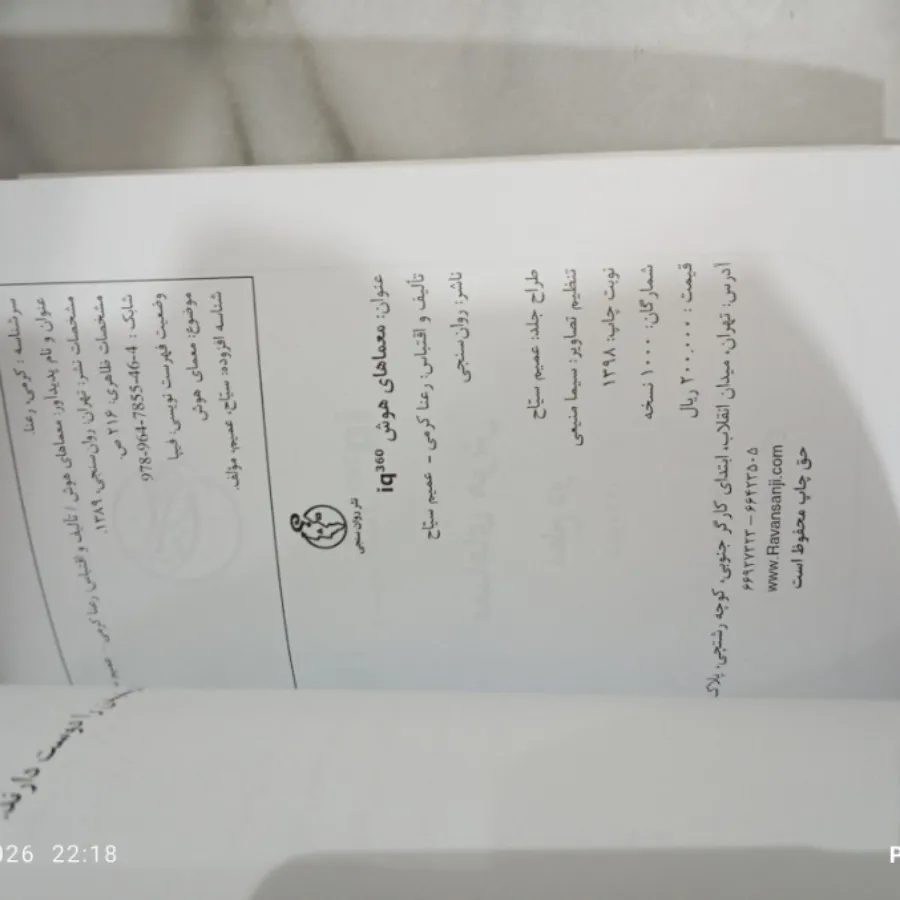 سرشناسه : کرمی، رعنا.
عنوان و نام پدیدآور: معماهای هوش / تألیف و اقتباس رعنا کرمی -
مشخصات نشر: تهران: روان سنجی، ۱۳۸۹.
مشخصات ظاهری: ۲۱۶ ص
شابک : 978-964-7855-46-4
وضعیت فهرست نویسی: فیپا
موضوع: معمای هوش
شناسه افزوده: سیّاح، عمیم، مؤلف.
نشر روان سنجی
عنوان: معماهای هوش iq³⁶⁰
تألیف و اقتباس: رعنا کرمی - عمیم سیّاح
ناشر: روان سنجی
طراح جلد: عمیم سیّاح
تنظیم تصاویر: سیما منیعی
نوبت چاپ: ۱۳۹۸
شمارگان: ۱۰۰۰ نسخه
قیمت : ۲۰۰.۰۰۰ ریال
آدرس: تهران، میدان انقلاب، ابتدای کارگر جنوبی، کوچه رشتچی، پلاک
۶۶۹۲۷۳۲۳ – ۶۶۴۲۳۵۰۵
www.Ravansanji.com
حق چاپ محفوظ است
دوست دارند
026 22:18